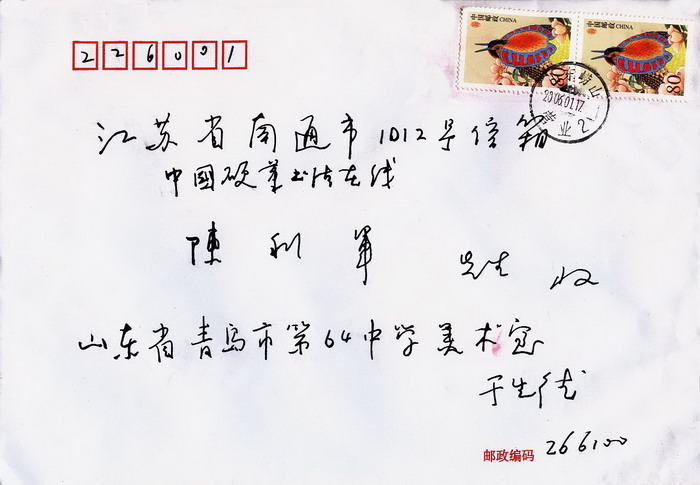 226001
中国邮政 CHINA
80
中国邮政 CHINA
80
崂山
2006.01.17
营业2
江苏省南通市1012号信箱
中國硬筆书法在线
陳利軍 先生 收
山东省青岛市第64中学美术室
于生德
邮政编码 266100